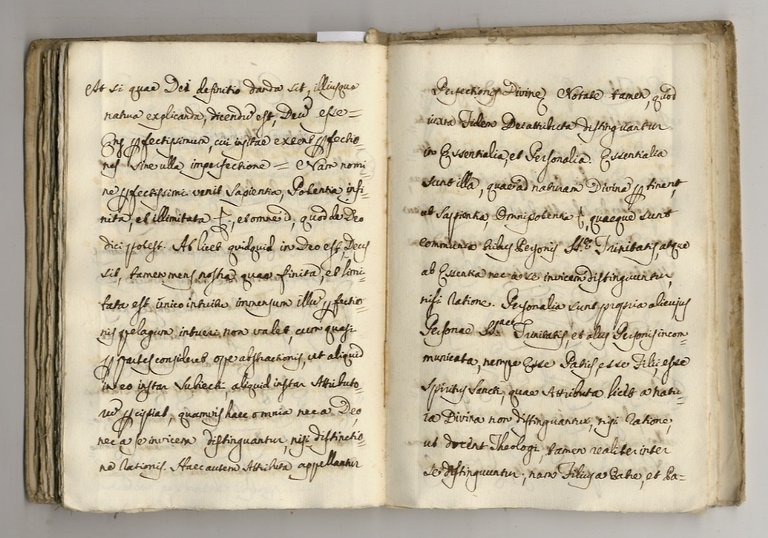 At si quae Dei definitio danda sit, illiusque
natura explicanda, dicendū est, Deū esse =
Ens pfectissimum, cui insitae exent pfectio=
nes sine ulla imperfectione = Nam nomi=
ne pfectissimi venit Sapientia, Potentia infi=
nita, et illimitata &, et omne id, quod de Deo
dici potest. At licet quidquid in Deo est, Deus
sit, tamen mens nostra quae finita, et limi=
tata est unico intuitu immensum illū pfectio=
nis pelagum intueri non valet, cum quasi
p partes considerat, ope abstractionis, ut aliquid
in eo instar Subiecti aliquid instar Attributo=
rū pcipiat, quamvis haec omnia nec a Deo,
nec a se invicem distinguantur, nisi distinctio=
ne rationis. Haec autem Attributa appellantur
Perfectiones Divinę Notate tamen, quod
iuxta Fidem Dei attributa distinguantur
in Essentialia, et Personalia. Essentialia
sunt illa, quae ad naturam Divinā ptinent,
ut Sapientia, Omnipotentia &, quaeque sunt
communia tribus Personis SS.ae Trinitatis, atque
ab Essentia nec a se invicem distinguuntur,
nisi ratione. Personalia sunt propria alicujus
Personae SS.ae Trinitatis, et aliis Personis incom=
municata, nempe Esse Patris esse Filii, esse
Spiritus Sancti, quae Attributa licet a natu=
ra Divina non distinguantur, nisi ratione,
ut docent Theologi, tamen realiter inter
se distinguuntur, nam Filius a Patre, et Pa=